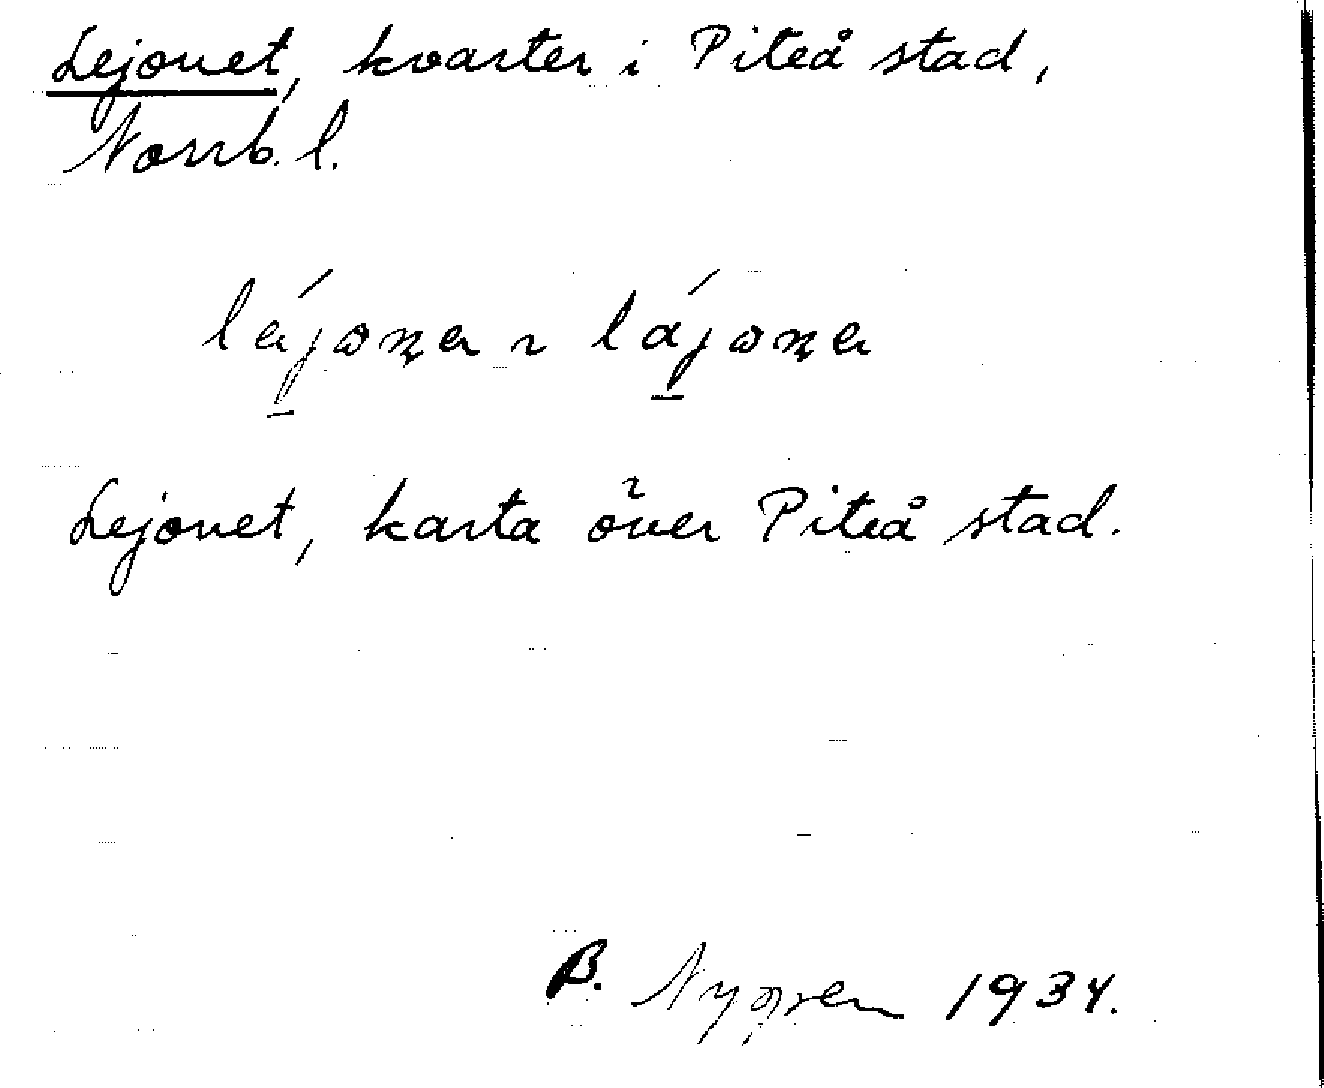 Lejonet, kvarter i Piteå stad,
Norrb. l.
Lejonet, karta över Piteå stad.
B. Nygren 1934.